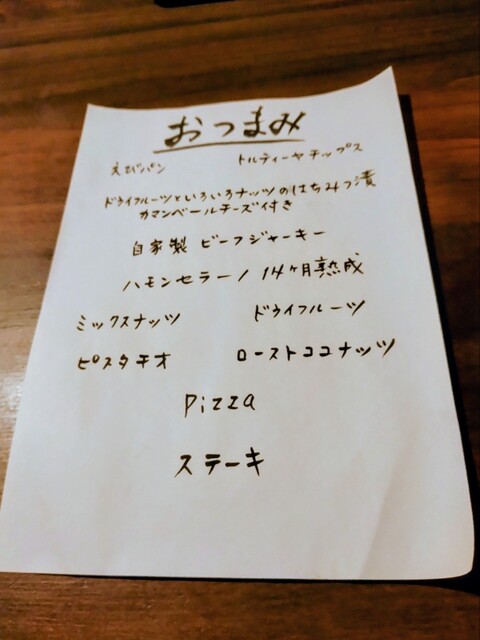 おつまみ
えびパン トルティーヤチップス
ドライフルーツといろいろナッツのはちみつ漬
カマンベールチーズ付き
自家製 ビーフジャーキー
ハモンセラーノ 14ヶ月熟成
ミックスナッツ ドライフルーツ
ピスタチオ ローストココナッツ
Pizza
ステーキ